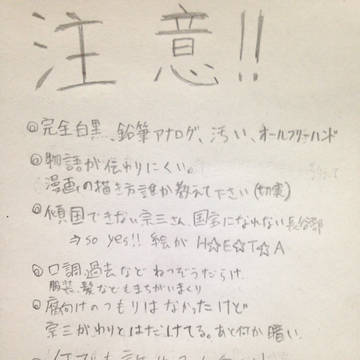 注意!!
◎完全白黒、鉛筆アナログ、汚い、オールフリーハンド
◎物語が伝わりにくい。
漫画の描き方誰か教えて下さい(切実)
◎傾国できない宗三さん、国宝になれない長谷部
⇒so yes!! 絵が H☆E☆T☆A
◎口調、過去など ねつぞうだらけ
服装、髪などもまちがいまくり
◎腐向けのつもりはなかったけど
宗三がわりとはだけてる。あと何か暗い